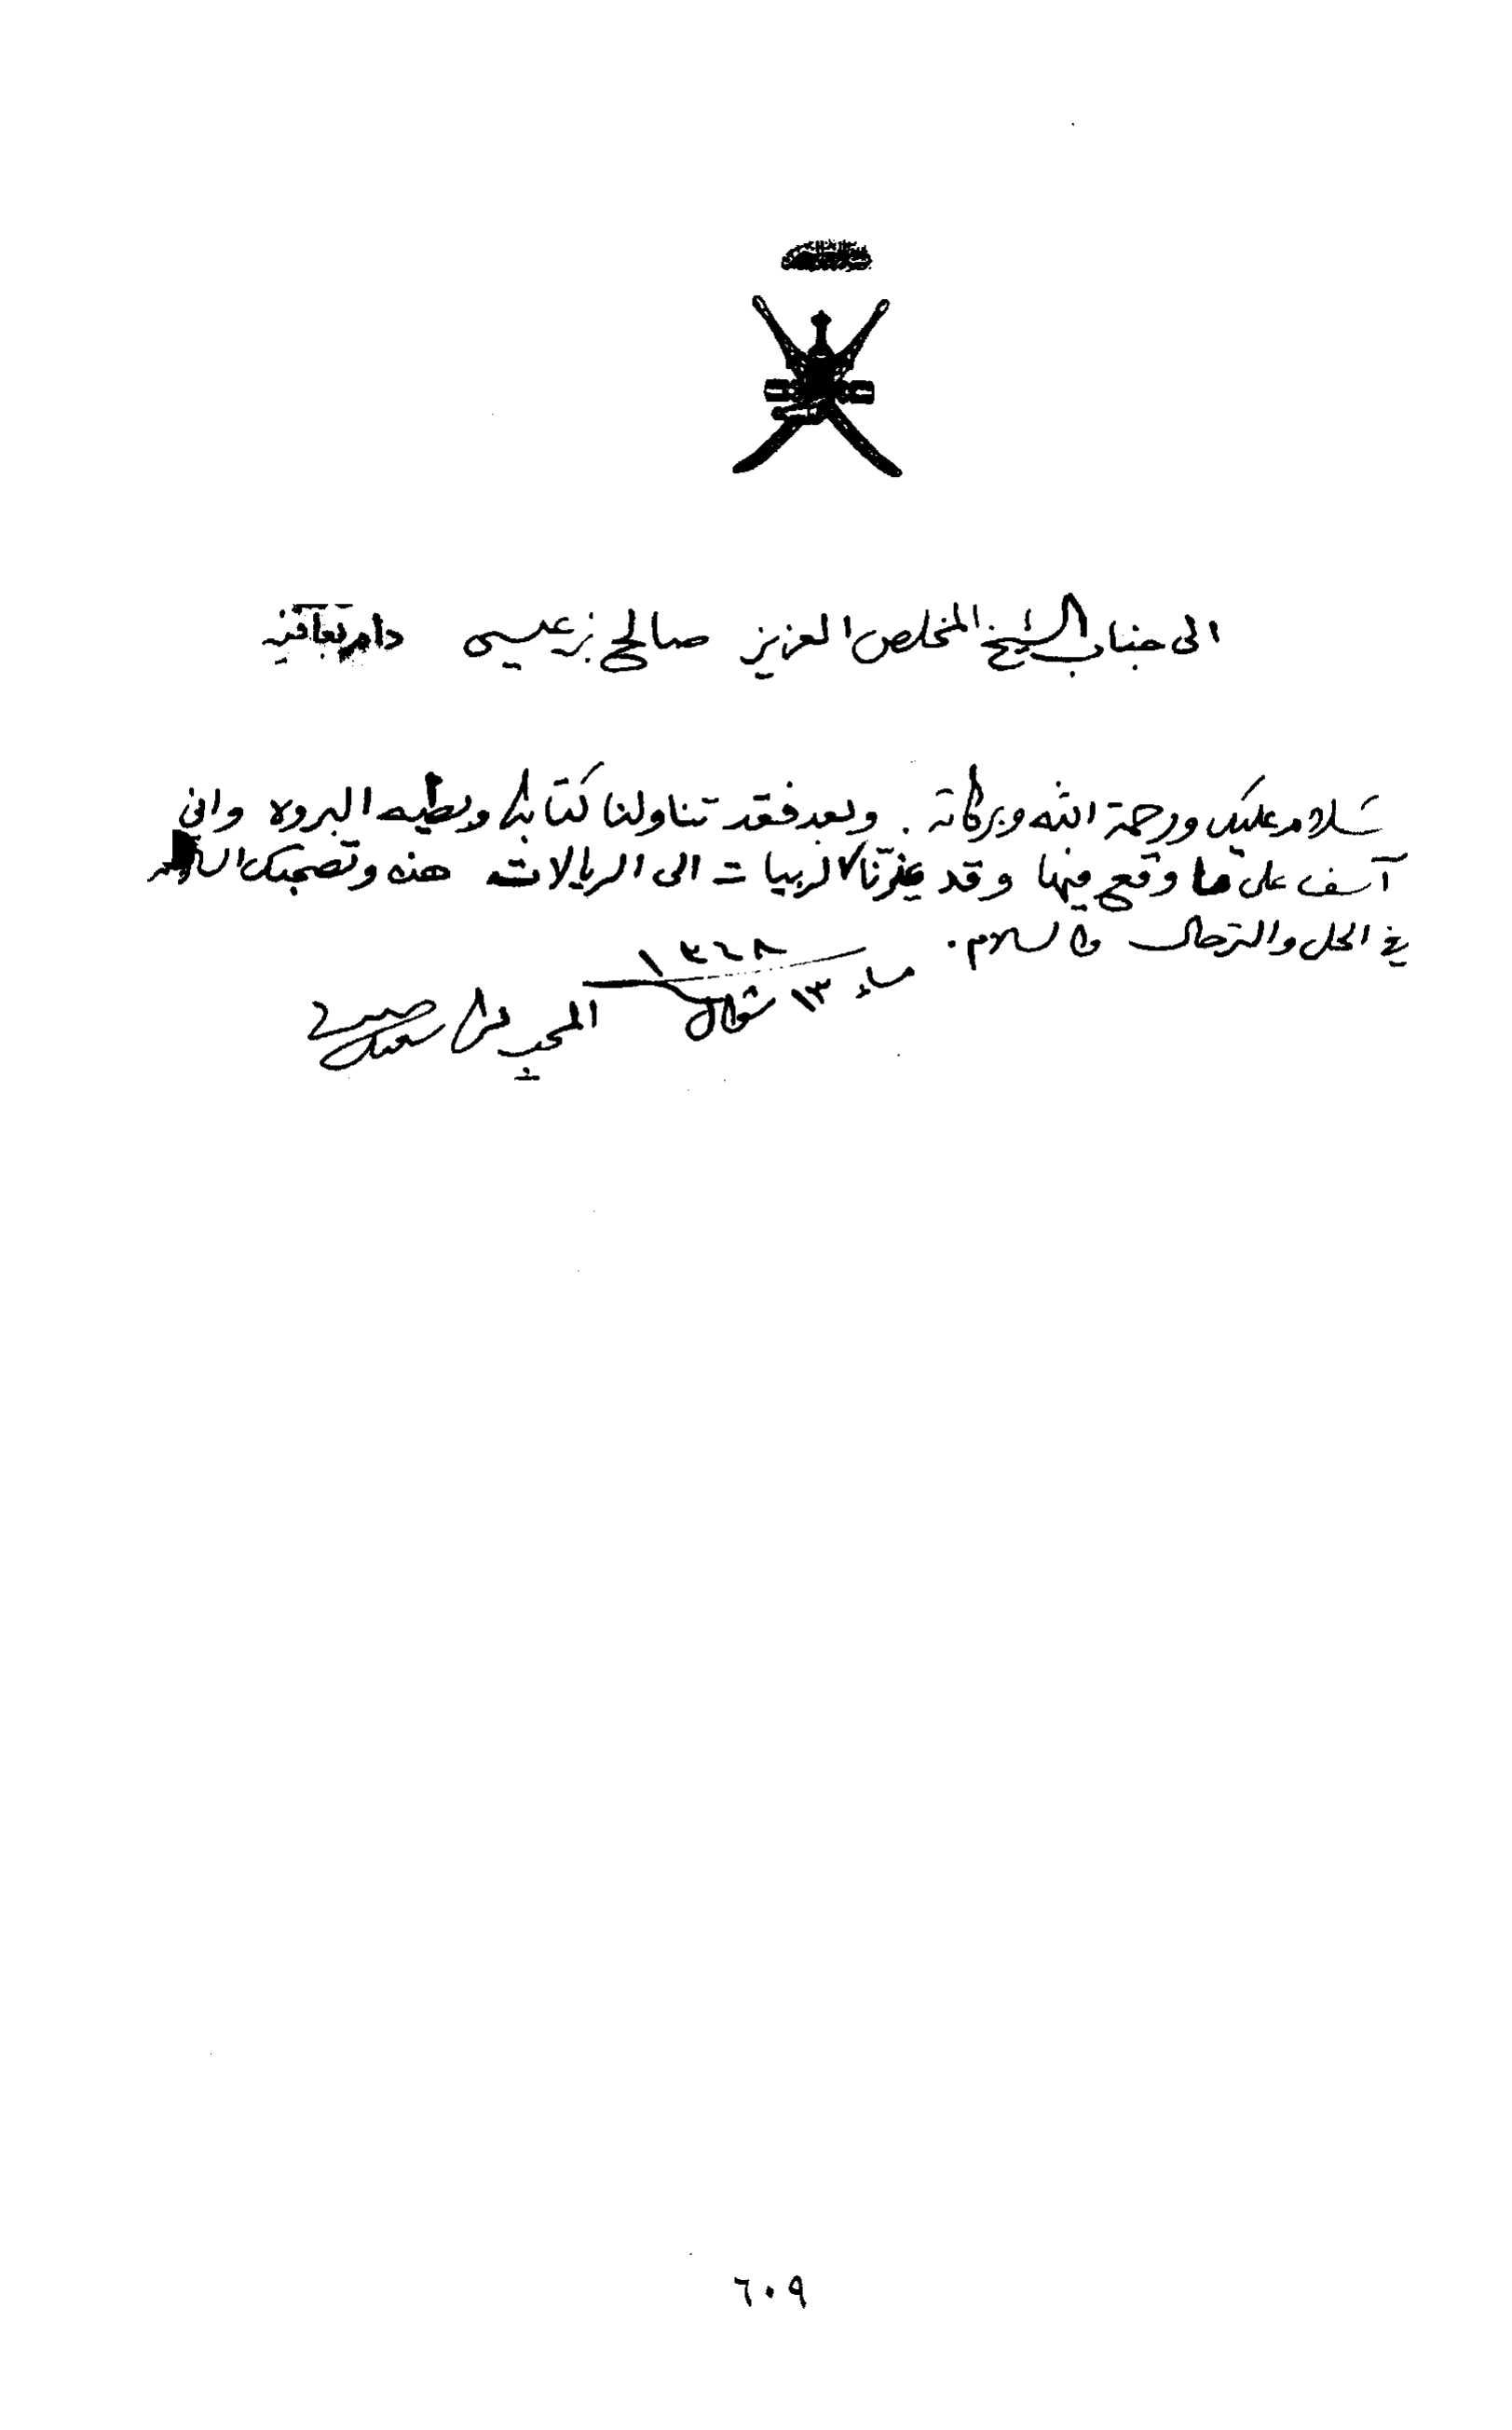 الى جناب الشيخ المخلص العزيز صالح بن عيسى دام بعافية
سلام عليك ورحمة الله وبركاته . وبعد فقد تناولنا كتابك وبطيه البروه واني
آسف على ما وقع فيها وقد غيرنا الربيات الى الريالات هذه وتصحبك السلامه
في الحل والترحال والسلام .
١٣٦٨
مساء ١٣ شوال
المحب من سعيد
٦٠٩